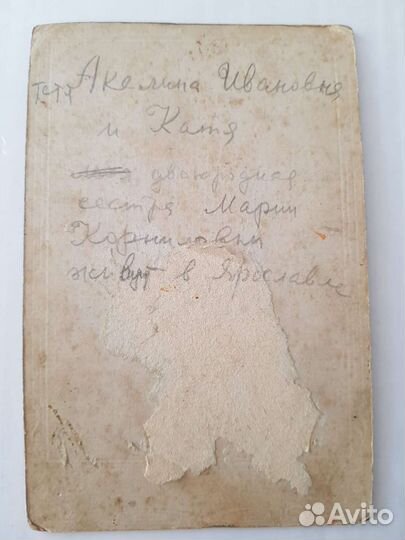 тётя Акелина Ивановна
и Катя
двоюродная
сестра Марии
Корниловны
живут в Ярославле
Avito